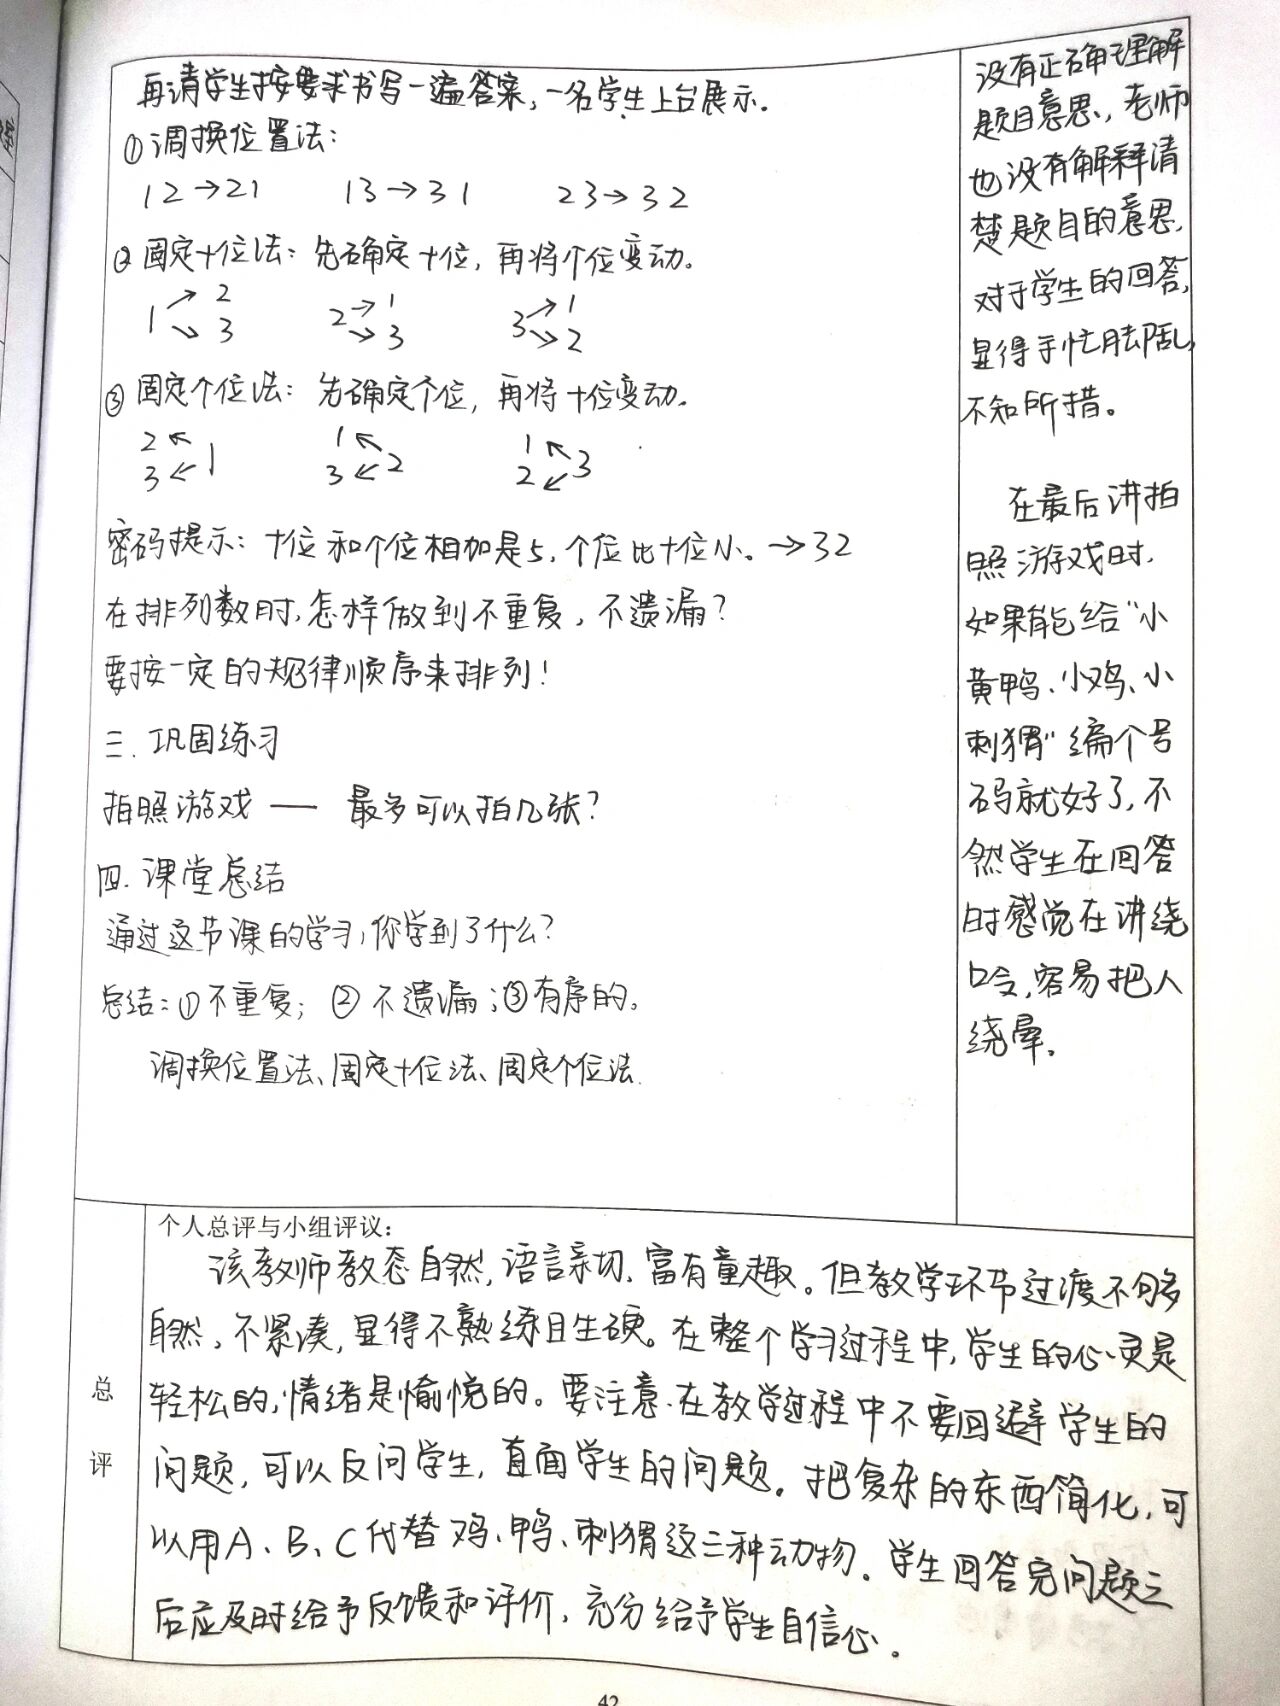 再请学生按要求书写一遍答案,一名学生上台展示。
①调换位置法:
12→21 13→31 23→32
②固定十位法:先确定十位,再将个位变动。
1→2 2→1 3→1
1→3 2→3 3→2
③固定个位法:先确定个位,再将十位变动。
2←1 1←2 1←3
3←1 3←2 2←3
密码提示:十位和个位相加是5,个位比十位小。→32
在排列数时,怎样做到不重复,不遗漏?
要按一定的规律顺序来排列!
三.巩固练习
拍照游戏—— 最多可以拍几张?
四.课堂总结
通过这节课的学习,你学到了什么?
总结:①不重复;②不遗漏;③有序的。
调换位置法、固定十位法、固定个位法.
没有正确理解
题目意思,老师
也没有解释清
楚题目的意思,
对于学生的回答,
显得手忙脚乱,
不知所措。
在最后讲拍
照游戏时,
如果能给“小
黄鸭、小鸡、小
刺猬”编个号
码就好了,不
然学生在回答
时感觉在讲绕
口令,容易把人
绕晕。
总评
个人总评与小组评议:
该教师教态自然,语言亲切,富有童趣。但教学环节过渡不够
自然,不紧凑,显得不熟练且生硬。在整个学习过程中,学生的心灵是
轻松的,情绪是愉悦的。要注意在教学过程中不要回避学生的
问题,可以反问学生,直面学生的问题。把复杂的东西简化,可
以用A、B、C代替鸡、鸭、刺猬这三种动物。学生回答完问题之
后应及时给予反馈和评价,充分给予学生自信心。
42